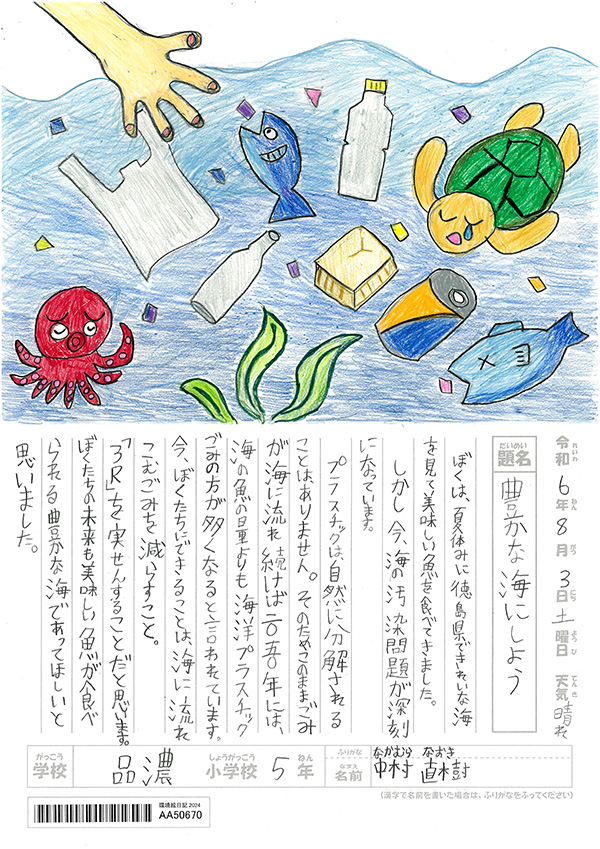 令和6年8月3日土曜日 天気晴れ
れいわ ねん がつ にち ようび てんき
だいめい
題名 豊かな海にしよう
ぼくは、夏休みに徳島県できれいな海
を見て美味しい魚を食べてきました。
しかし今、海の汚染問題が深刻
になっています。
プラスチックは、自然に分解される
ことはありません。そのためこのままごみ
が海に流れ続けば二〇五〇年には、
海の魚の量よりも海洋プラスチック
ごみの方が多くなると言われています。
今、ぼくたちにできることは、海に流れ
こむごみを減らすこと。
「3R」を実せんすることだと思います。
ぼくたちの未来も美味しい魚が食べ
られる豊かな海であってほしいと
思いました。
がっこう しょうがっこう ねん ふりがな なかむら なおき
学校 品濃 小学校 5年 なまえ 名前 中村 直樹
(漢字で名前を書いた場合は、ふりがなをふってください)
環境絵日記 2024
AA50670